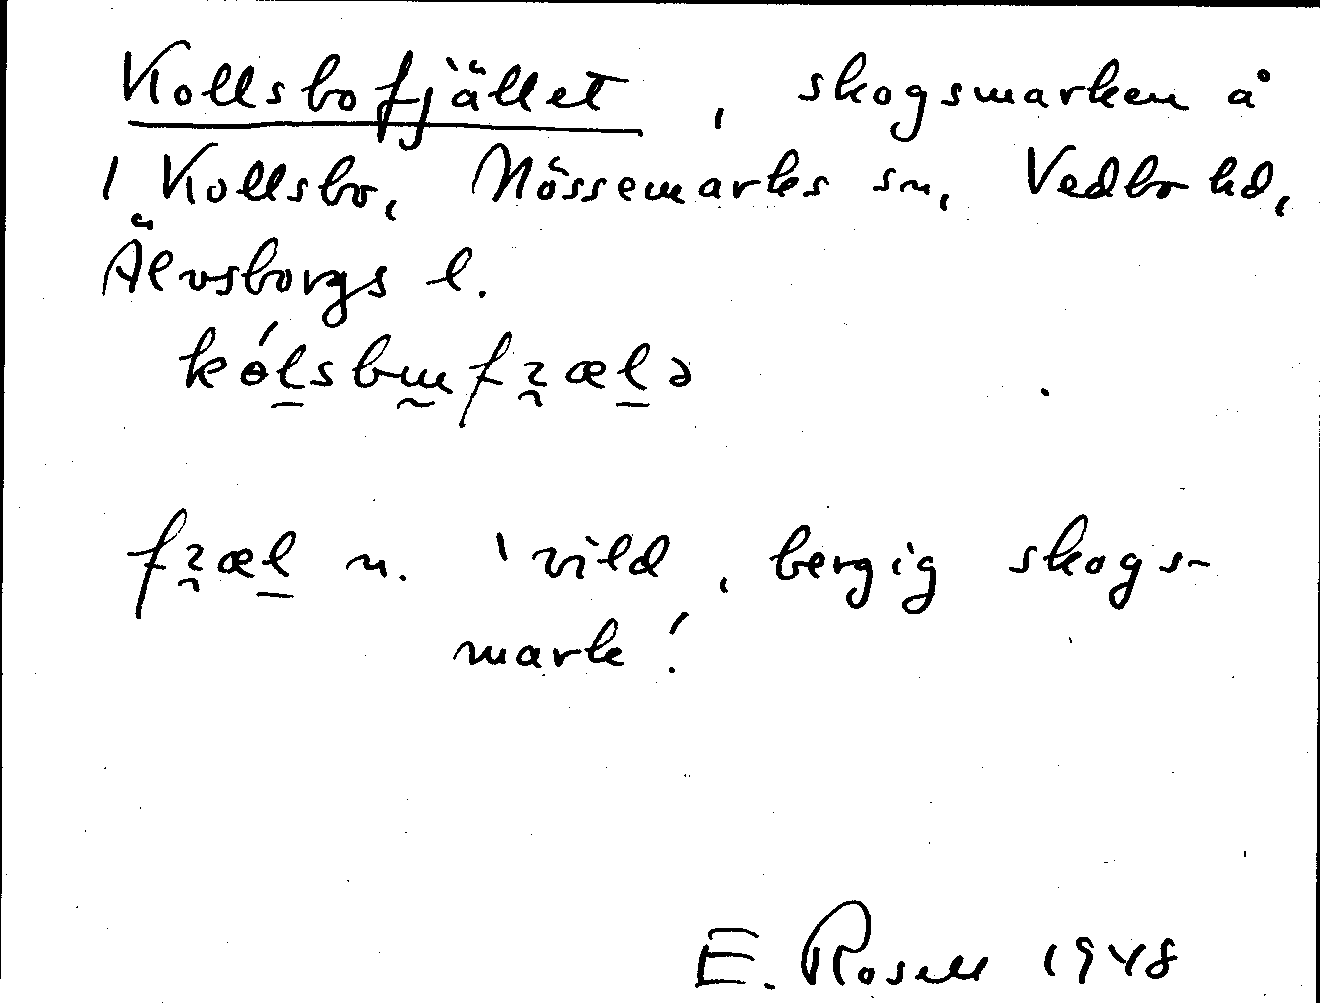 Kollsbofjället, skogsmarken å
1 Kollsbo, Nössemarks sn, Vedbo hd,
Älvsborgs l.
kólsbɯfꝛælə
fꝛæl n. 'vild, bergig skogs-
mark'.
E. Rosell 1948